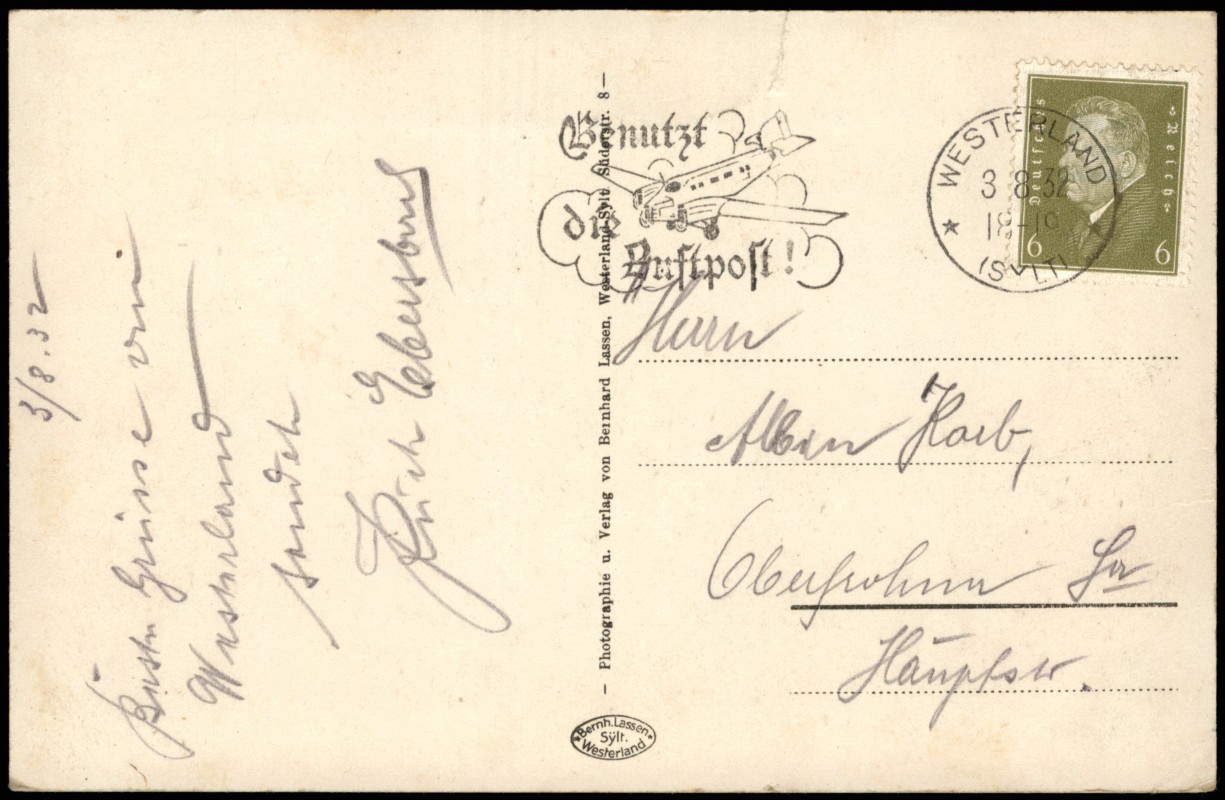 3/8.32
Beste Grüsse von
Westerland
sendet
Ebersbach
- Photographie u. Verlag von Bernhard Lassen, Westerland-Sylt. Süderstr. 8 -
Bernh. Lassen
Sylt.
Westerland
Benutzt
die
Luftpost!
WESTERLAND
3.8.32
18-19
(SYLT)
Deutsches Reich
6 6
Herrn
Albin Korb,
Oberfrohna Sa
Hauptstr.